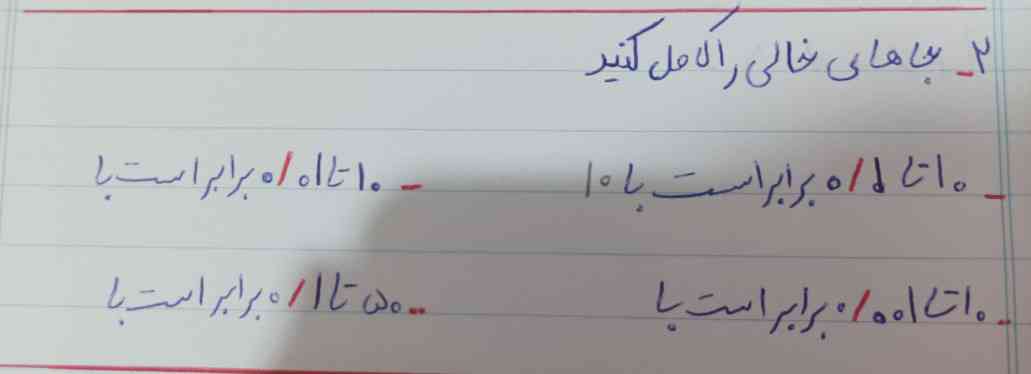 ۲_ جاهای خالی را کامل کنید
_ ۱۰ تا ۰/۱ برابر است با ۱۰
_ ۱۰ تا ۰/۰۱ برابر است با
_ ۱۰ تا ۰/۰۰۱ برابر است با
_ ۵۰ تا ۰/۱ برابر است با